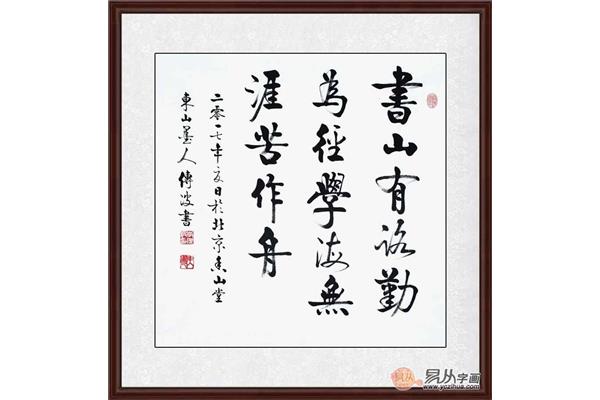 書山有路勤
為徑學海無
涯苦作舟
二零一七年夏日於北京東山堂
東山墨人傅波書
易从
易从字画
www.yczihua.com